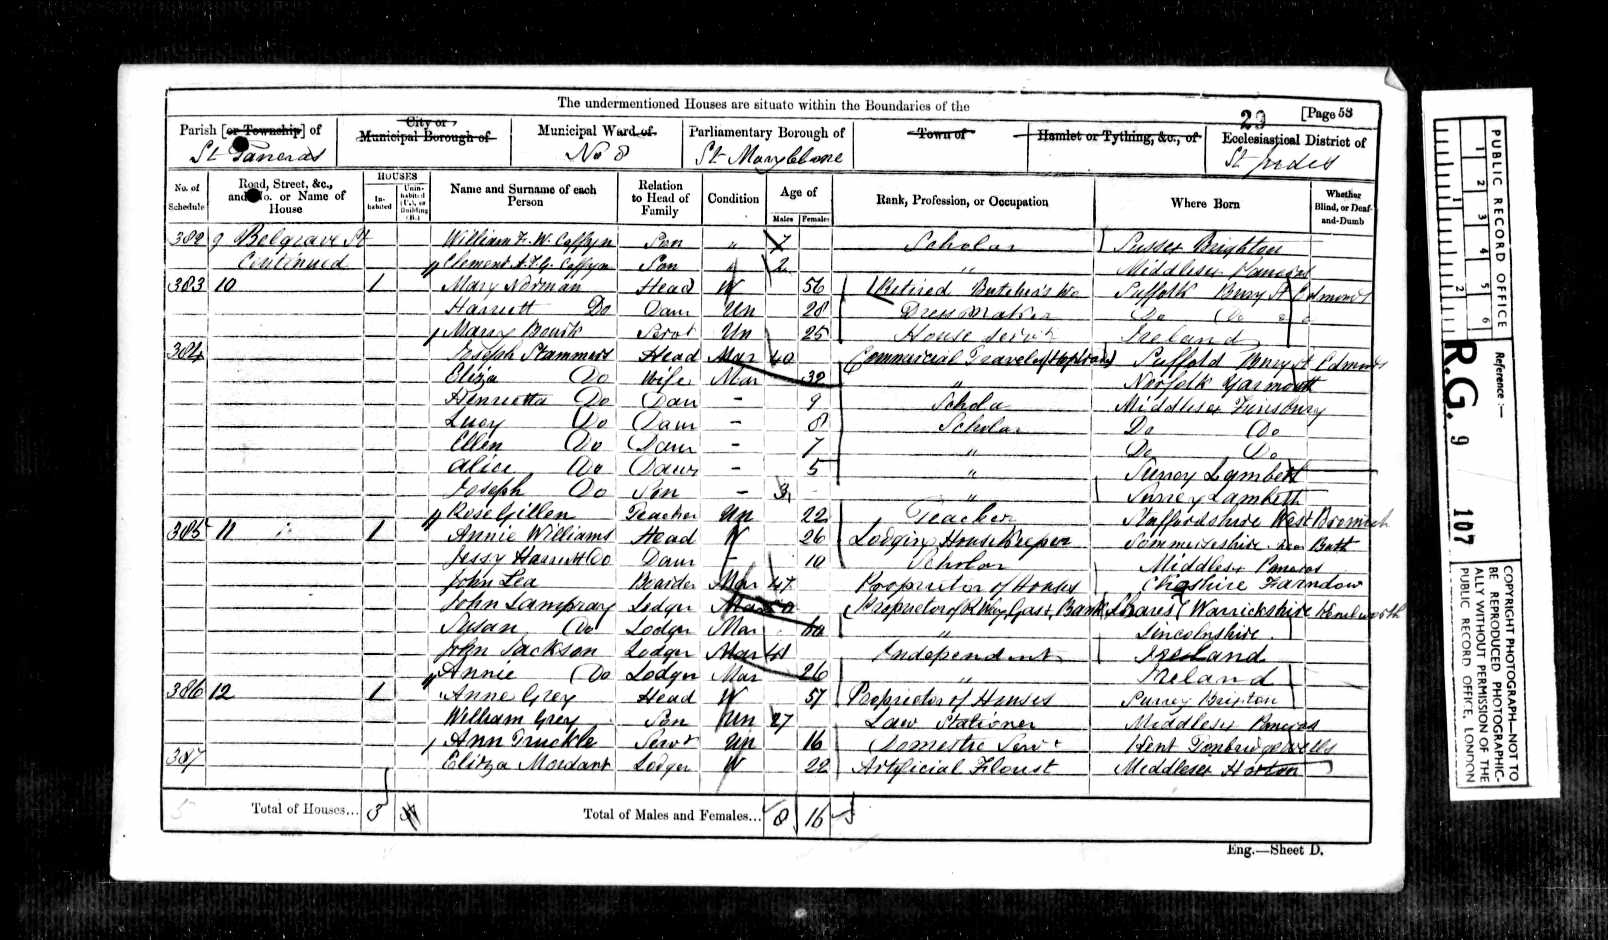 The undermentioned Houses are situate within the Boundaries of the
23 [Page 53
Parish [or Township] of St Pancras
City or Municipal Borough of
Municipal Ward of No 8
Parliamentary Borough of St Marylebone
Town of
Hamlet or Tything, &c., of
Ecclesiastical District of St Judes
No. of Schedule
Road, Street, &c., and No. or Name of House
HOUSES
In-habited
Unin-habited (U.), or Building (B.)
Name and Surname of each Person
Relation to Head of Family
Condition
Age of
Males Females
Rank, Profession, or Occupation
Where Born
Whether Blind, or Deaf-and-Dumb
382 9 Belgrave St William F. W. Caffyn Son " 7 Scholar Sussex Brighton
Continued Clement A.F.G. Caffyn Son 2 " Middlesex Pancras
383 10 1 Mary Norman Head W 56 Retired Butcher's Wo Suffolk Bury St Edmonds
Harriett Do Daur Un 28 Dress Maker Do Do
Mary Bourk Servt Un 25 House Servt Ireland
384 Joseph Stammers Head Mar 40 Commercial Traveler Suffold Bury St Edmonds
Eliza Do Wife Mar 32 " Norfolk Yarmouth
Henrietta Do Daur - 9 Schola Middlesex Finsbury
Lucy Do Daur - 8 Scholar Do Do
Ellen Do Daur - 7 " Do Do
Alice Do Daur - 5 " Surrey Lambeth
Joseph Do Son - 3 " Surrey Lambeth
Rose Gillen Teacher Un 22 Teacher Staffordshire West Bromich
385 11 1 Annie Williams Head W 26 Lodging House Keeper Sommersetshire near Bath
Jessy Harriett Do Daur - 10 Scholar Middlesex Pancras
John Lea Boarder Mar 47 Proprietor of Houses Cheshire Farndow
John Lampray Lodger Mar Proprietor of Gas & Bank Shares Warrickshire Kenelworth
Susan Do Lodger Mar 60 " Lincolnshire
John Jackson Lodger Mar 41 Independent Ireland
Annie Do Lodger Mar 26 " Ireland
386 12 1 Anne Grey Head W 57 Proprietor of Houses Surrey Brixton
William Grey Son Un 27 Law Stationer Middlesex Pancras
Ann Truckle Servt Un 16 Domestic Servt Kent Tonbridge Wells
387 Elizza Mordant Lodger W 22 Artificial Florist Middlesex Hoxton
Total of Houses... 3
Total of Males and Females... 8 16
Eng.—Sheet D.
PUBLIC RECORD OFFICE
1 2 3 4 5 6
1 2
Reference :—
R.G. 9 107
COPYRIGHT PHOTOGRAPH—NOT TO BE REPRODUCED PHOTOGRAPHIC-ALLY WITHOUT PERMISSION OF THE PUBLIC RECORD OFFICE, LONDON